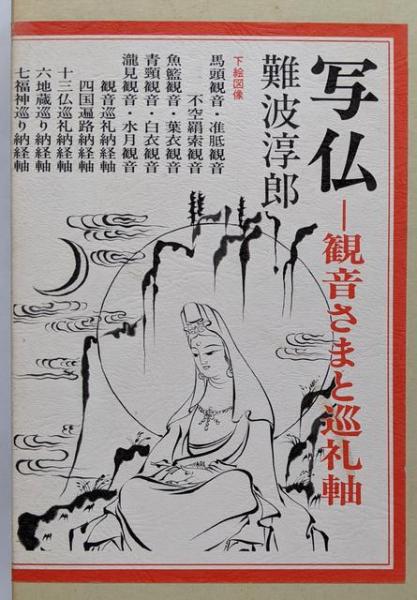 写仏
―観音さまと巡礼軸
難波淳郎
下絵図像
馬頭観音・准胝観音
不空羂索観音
魚籃観音・葉衣観音
青頸観音・白衣観音
瀧見観音・水月観音
観音巡礼納経軸
四国遍路納経軸
十三仏巡礼納経軸
六地蔵巡り納経軸
七福神巡り納経軸